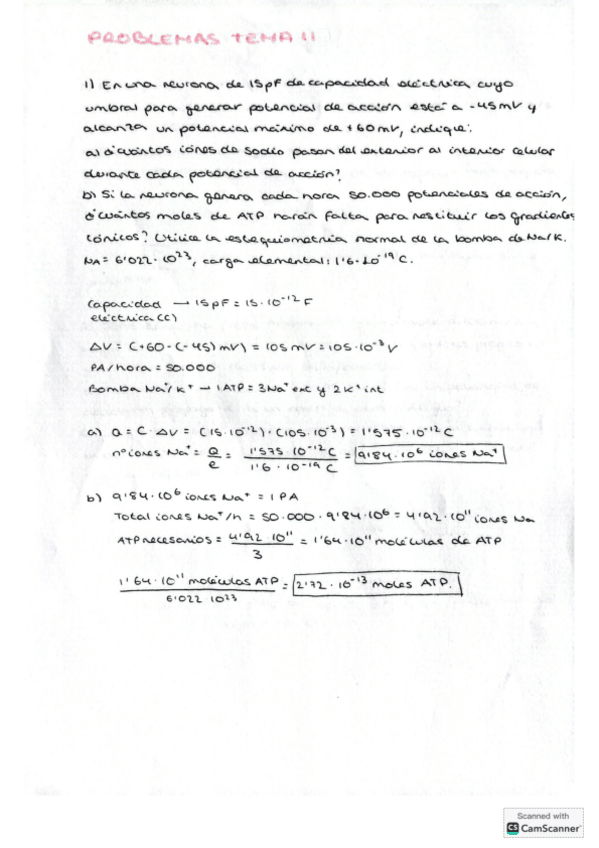 PROBLEMAS TEMA 11
1) En una neurona de 15pF de capacidad eléctrica cuyo
umbral para generar potencial de acción está a -45mV y
alcanza un potencial máximo de +60mV, indique:
a) ¿Cuántos iones de sodio pasan del exterior al interior celular
durante cada potencial de acción?
b) Si la neurona genera cada hora 50.000 potenciales de acción,
¿Cuántos moles de ATP harán falta para restituir los gradientes
iónicos? Utilice la estequiometria normal de la bomba de Na/K.
NA = 6'022 · 10²³, carga elemental: 1'6 · 10⁻¹⁹ C.
Capacidad → 15pF = 15 · 10⁻¹² F
eléctrica (C)
ΔV = (+60 - (-45) mV) = 105 mV = 105 · 10⁻³ V
PA/hora = 50.000
Bomba Na⁺/K⁺ → 1 ATP = 3Na⁺ ext y 2K⁺ int
a) Q = C · ΔV = (15 · 10⁻¹²) · (105 · 10⁻³) = 1'575 · 10⁻¹² C
nº iones Na⁺ = Q/e = 1'575 · 10⁻¹² C / 1'6 · 10⁻¹⁹ C = 9'84 · 10⁶ iones Na⁺
b) 9'84 · 10⁶ iones Na⁺ = 1 PA
Total iones Na⁺/h = 50.000 · 9'84 · 10⁶ = 4'92 · 10¹¹ iones Na
ATP necesarios = 4'92 · 10¹¹ / 3 = 1'64 · 10¹¹ moléculas de ATP
1'64 · 10¹¹ moléculas ATP / 6'022 10²³ = 2'72 · 10⁻¹³ moles ATP.
Scanned with
CS CamScanner